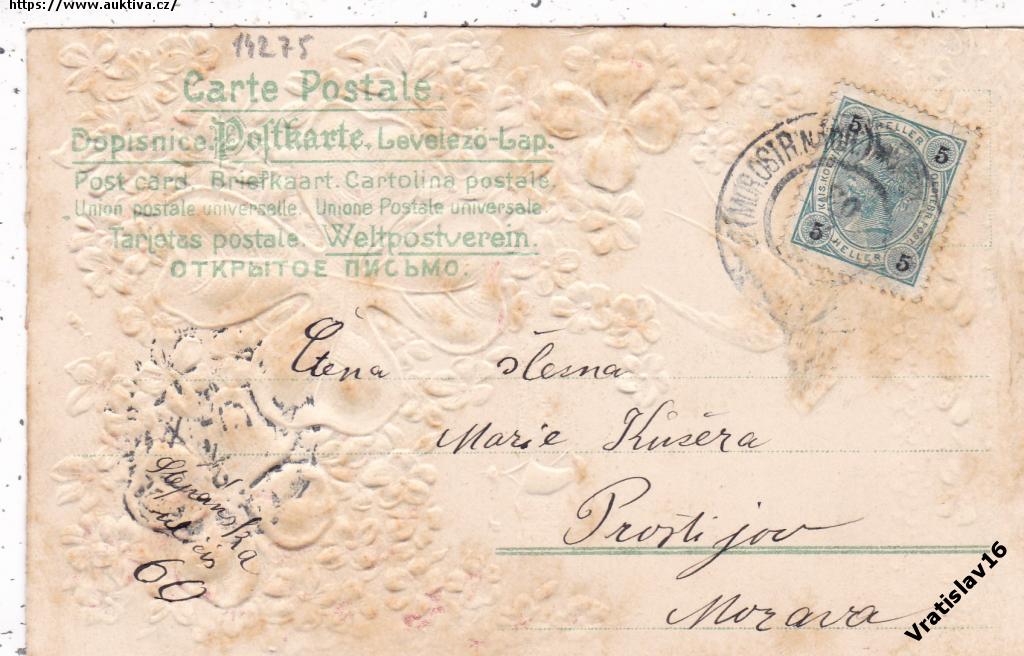 https://www.auktiva.cz/
14275
Carte Postale.
Dopisnice. Postkarte. Levelező-Lap.
Post card. Briefkaart. Cartolina postale.
Union postale universelle. Unione Postale universale
Tarjetas postale. Weltpostverein.
ОТКРЫТОЕ ПИСЬМО.
5 HELLER 5
5 HELLER 5
Ctěna slesna
Marie Kušera
Prostijov
Morava
Stepánska
ulicis
60
Vratislav16